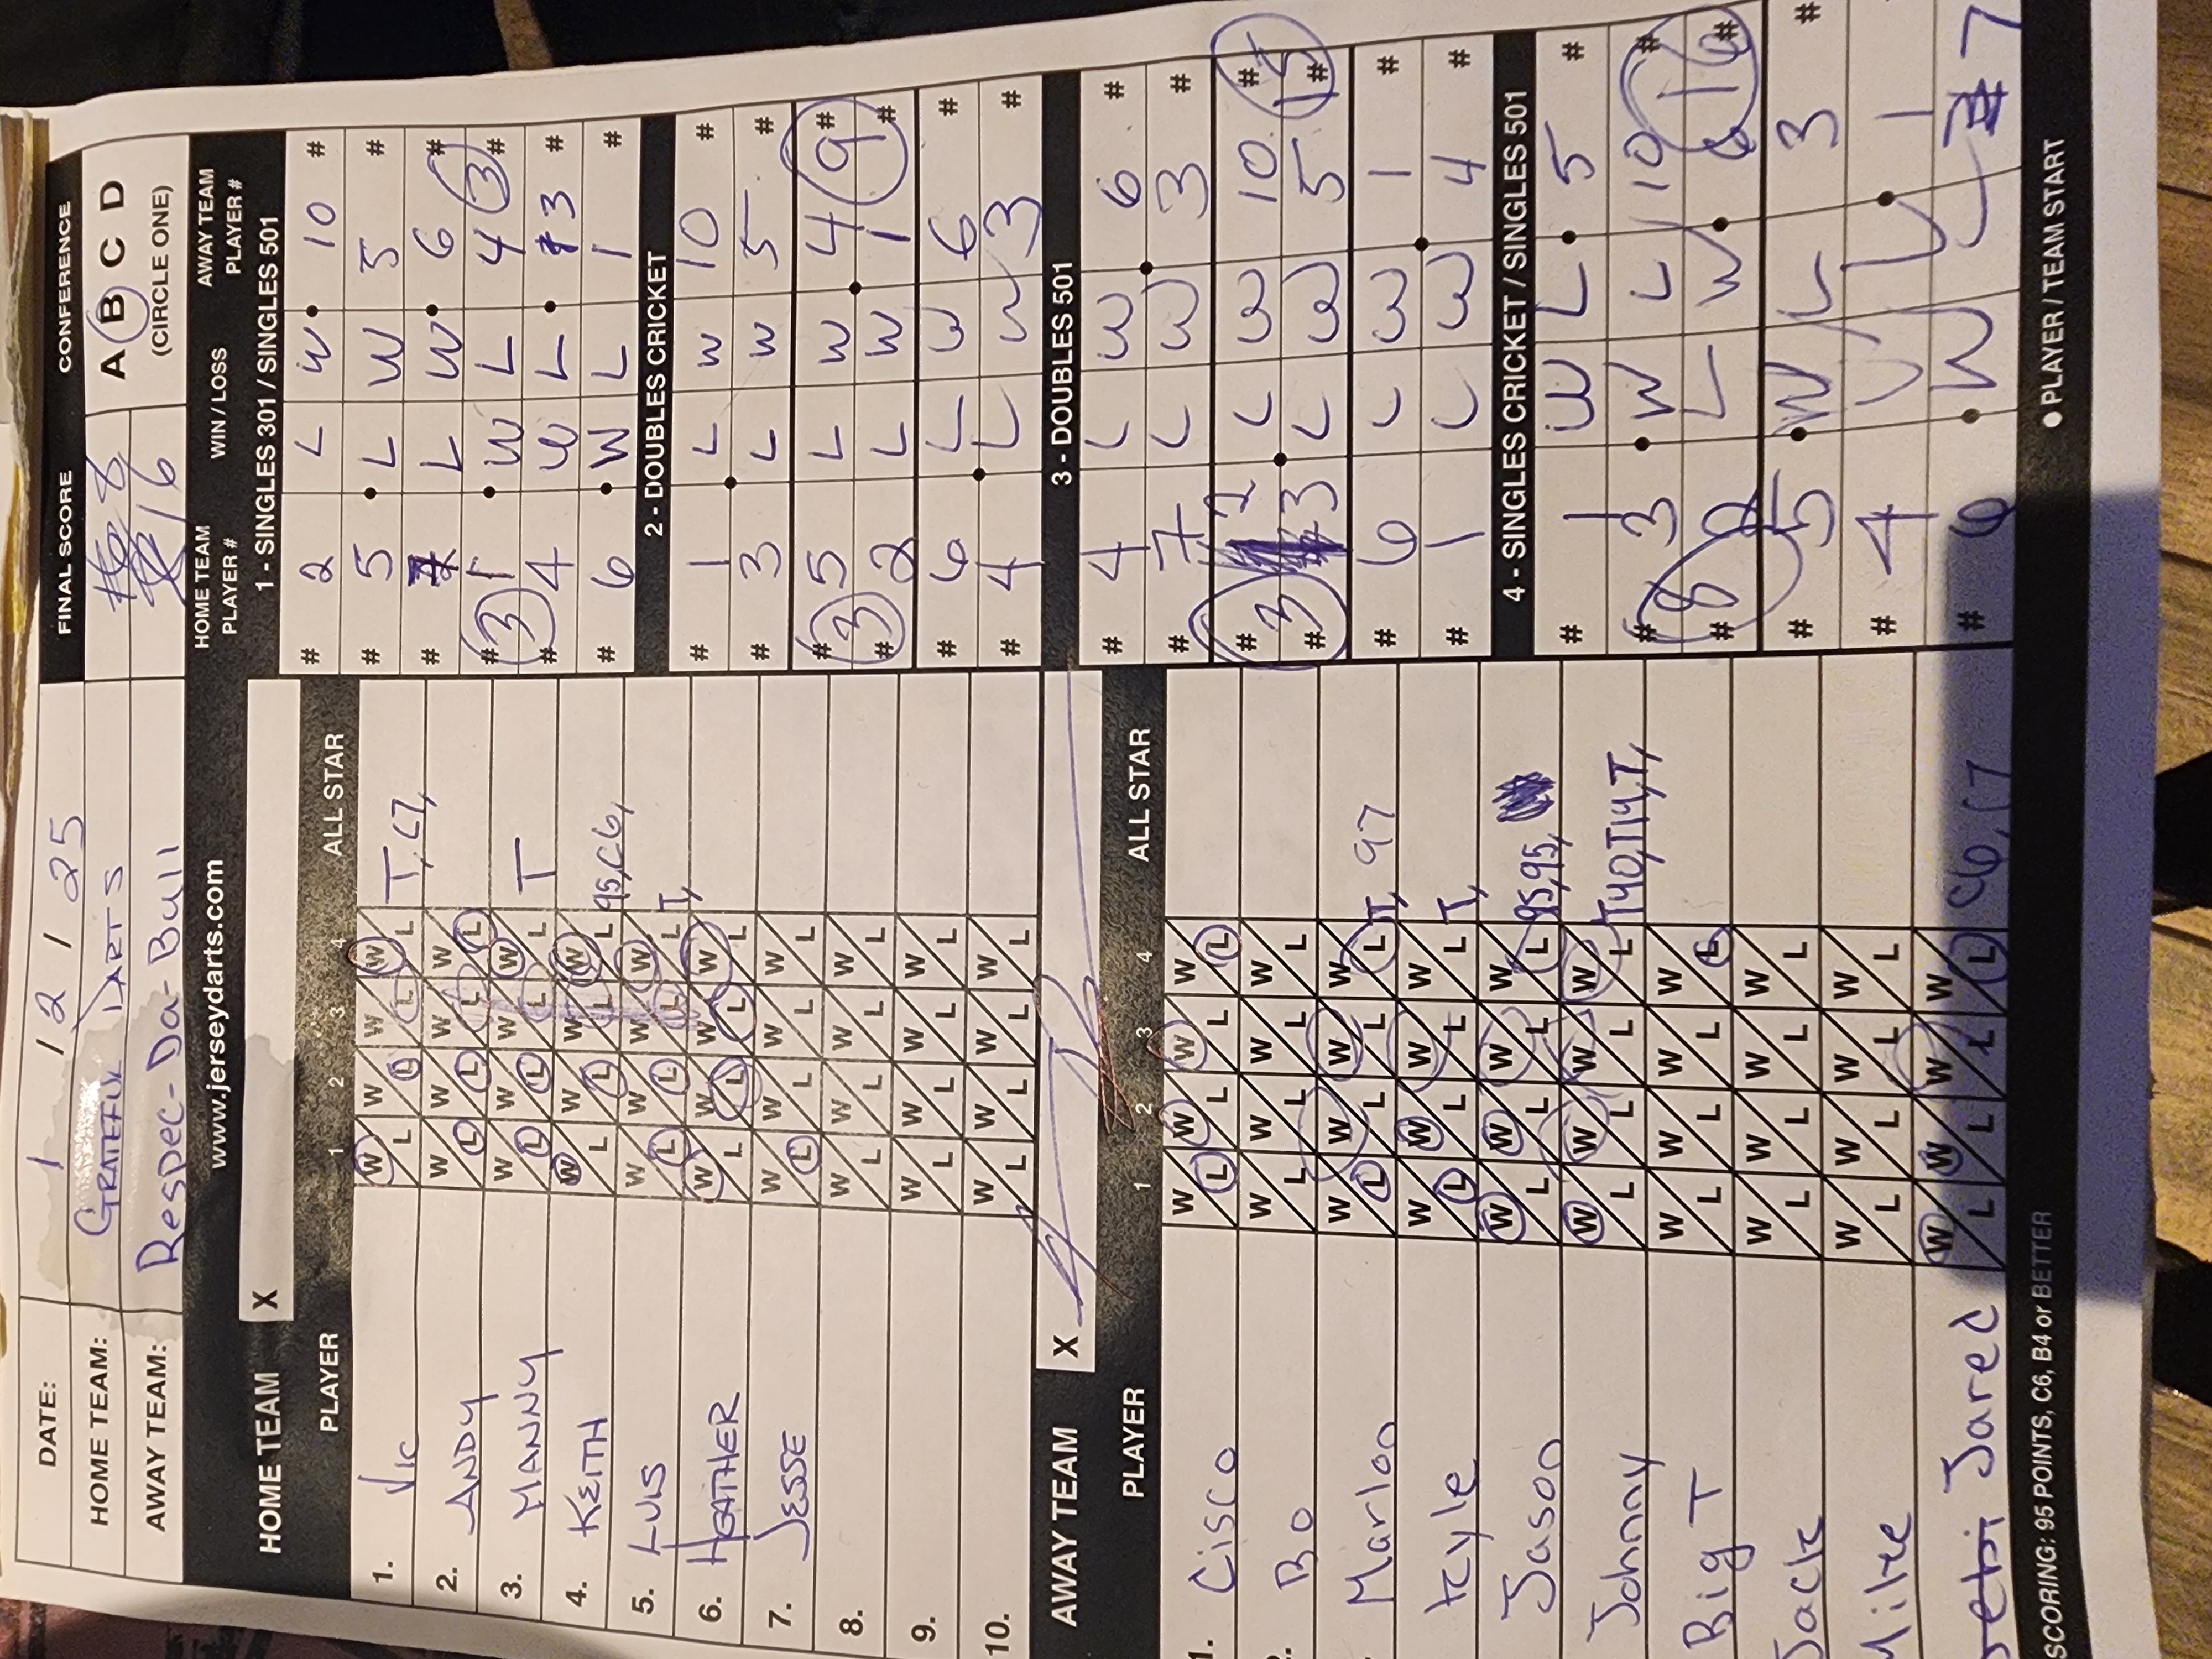 DATE: 1 12 1 25
FINAL SCORE
CONFERENCE
HOME TEAM: GRATEFUL DARTS
8
A B C D
AWAY TEAM: Respec-Da-Bull
16
(CIRCLE ONE)
www.jerseydarts.com
HOME TEAM PLAYER #
WIN / LOSS
AWAY TEAM PLAYER #
HOME TEAM X
PLAYER 1 2 3 4 ALL STAR
1. Vic W L W L W L W L T, C7,
2. ANDY W L W L W L W L
3. MANNY W L W L W L W L T
4. KEITH W L W L W L W L 95, C6,
5. LUIS W L W L W L W L T,
6. HEATHER W L W L W L W L
7. JESSE W L W L W L W L
8. W L W L W L W L
9. W L W L W L W L
10. W L W L W L W L
AWAY TEAM X
PLAYER 1 2 3 4 ALL STAR
1. Cisco W L W L W L W L
Bo W L W L W L W L
Marlon W L W L W L W L T, 97
Kyle W L W L W L W L T,
Jason W L W L W L W L 95, 95,
Johnny W L W L W L W L T40, T14, T,
Big T W L W L W L W L
Jack W L W L W L W L
Mike W L W L W L W L
Jared W L W L W L W L C6, C7
SCORING: 95 POINTS, C6, B4 or BETTER
1 - SINGLES 301 / SINGLES 501
# 2 L W 10 #
# 5 L W 5 #
# 7 L W 6 #
# 3 1 W L 4 3 #
# 4 W L 3 #
# 6 W L 1 #
2 - DOUBLES CRICKET
# 1 L W 10 #
# 3 L W 5 #
# 5 L W 4 #
# 3 2 L W 1 9 #
# 6 L W 6 #
# 4 L W 3 #
3 - DOUBLES 501
# 4 L W 6 #
# 7 L W 3 #
# 2 L W 10 #
# 3 3 L W 5 15 #
# 6 L W 1 #
# 1 L W 4 #
4 - SINGLES CRICKET / SINGLES 501
# 1 W L 5 #
# 3 W L 10 #
# 8 2 L W 6 16 #
# 5 W L 3 #
# 4 W L 1
# 6 W L 7
● PLAYER / TEAM START